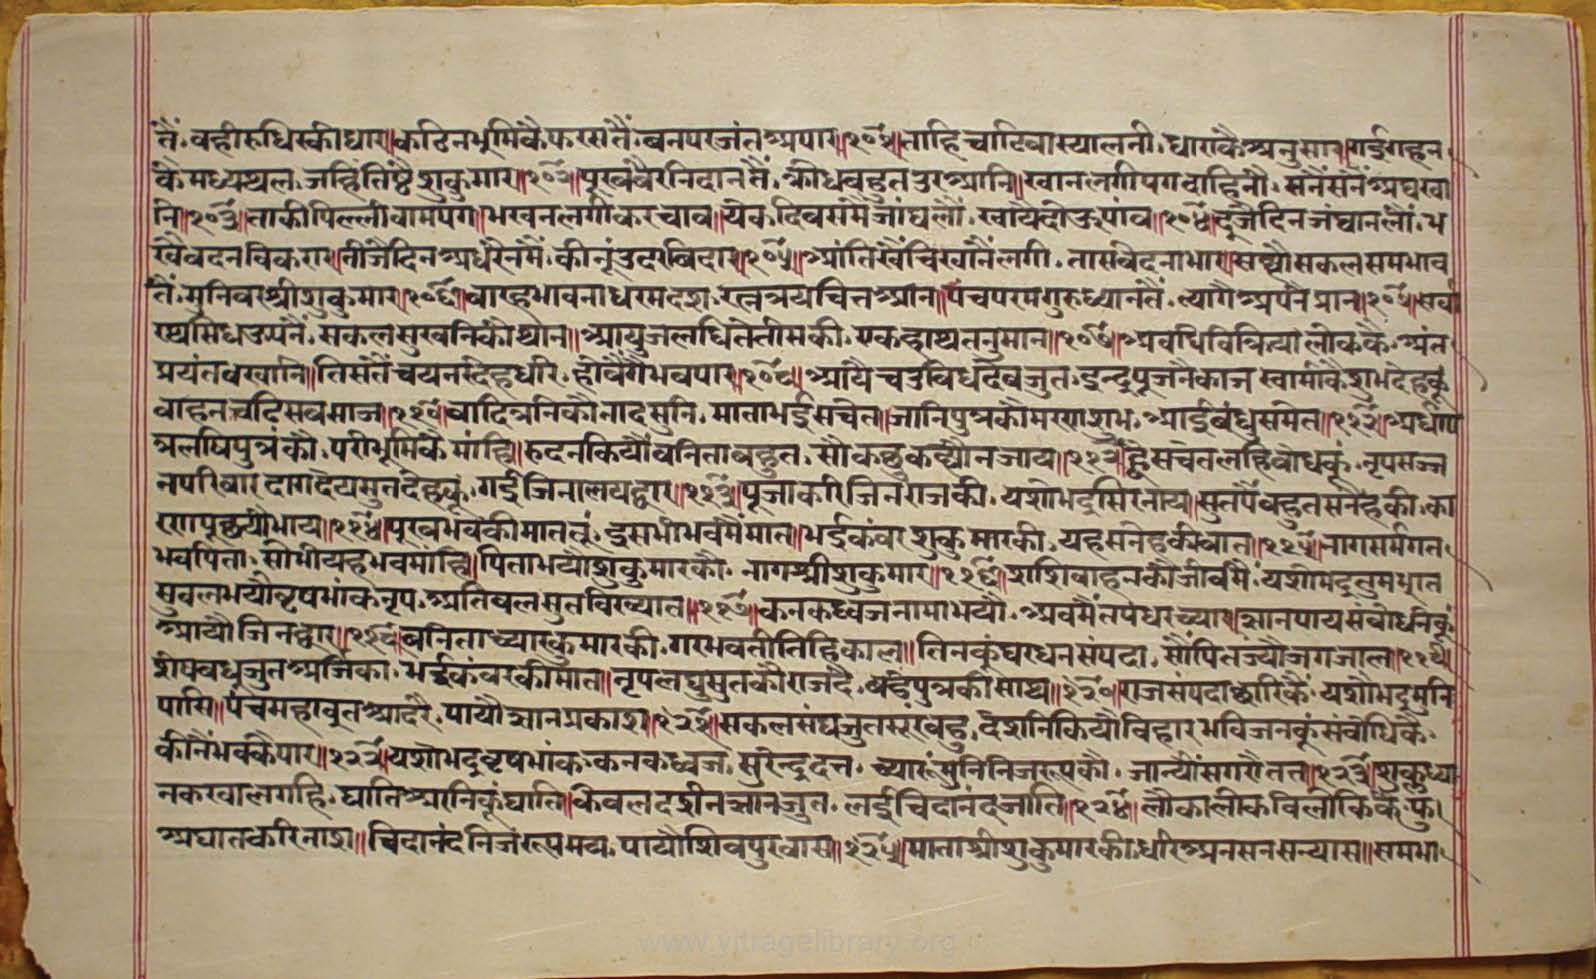 तैं. वही रुधिरकी धार॥ कठिन भूमिकै फरसतैं. बन परजंत अपार॥१०१॥ ताहि चाटि वा स्यालनी. धाराकै अनुसार॥ गई गहन
कै मध्य थल. जहिं तिष्टै शुकुमार॥१०२॥ पूरव वैर निदानतैं. क्रोध बहुत उर आनि॥ खान लगी पग दाहिनौ. सनैं सनैं अघ खा
नि॥१०३॥ ताकी पिल्ली वाम पग॥ भखन लगी कर चाव॥ येक दिवसमैं जांघलौं. खायै दोऊ पांव॥१०४॥ दूजै दिन जंघानलौं. भ
खै वदन विकरार॥ तीजै दिन अध रैनमैं. कीनूं उदर विदार॥१०५॥ आंति खैंचि खानैं लगी. तास वेदना भार॥ सह्यौ सकल समभाव
तैं. मुनिवर श्री शुकुमार॥१०६॥ बारह भावना धरम दश. रत्नत्रय चित्त आन॥ पंच परम गुरु ध्यानतैं. त्यागै अपनै प्रान॥१०७॥ सर्वा
रथसिध ऊपनैं. सकल सुखनिकौ थान॥ आयु जलधि तेतीसकी. एक हाथ तनु मान॥१०८॥ अवधि विक्रिया लोककै. अंत
प्रयंत वखानि॥ तिसतैं चय नरदेह धरि. होवैंगै भव पार॥१०९॥ आयै चउविध देव जुत. इन्द्र पूजनै काज स्वामीकै शुभ देहकूं
वाहन चढि सब साज॥११०॥ वादित्रनिकौ नाद सुनि. माता भई सचेत॥ जानि पुत्रकौ मरण शुभ. आई बंधु समेत॥१११॥ अधषा
अलषि पुत्रकौ. परी भूमिकै मांहि॥ रुदन कियौ वनिता बहुत. सो कछु कह्यौ न जाय॥११२॥ ह्वै सचेत लहि बोधकूं. नृप सज्ज
न परिवार दाग दैय सुत देहकूं. गई जिनालय द्वार॥११३॥ पूजा करि जिनराजकी. यशोभद्र सिर नाय॥ सुतपै बहुत सनेहकी. का
रण पूछ्यौ भाय॥११४॥ पूरव भवकी मात तूं. इस भी भवमैं मात॥ भई कंवर शुकुमारकी. यह सनेहकी बात॥११५॥ नागसर्म गत
भव पिता. सोभी यह भव मांहि॥ पिता भयौ शुकुमारकौ. नागश्री शुकुमार॥११६॥ शशिवाहनकौ जीव मैं. यशोभद्र तुम भ्रात
सुबल भयौ वृषभांक नृप. अतिबल सुत विख्यात॥११७॥ कनकध्वज नामा भयौ. अवमैं तप धर च्यार॥ ज्ञान पाय संबोधनेकूं.
आयौ जिन द्वार॥११८॥ वनिता च्यार कुमारकी. गरभवती तिहि काल॥ तिनकुं घर धन संपदा. सौंपि तज्यौ जगजाल॥११९॥
शेष वधू जुत अर्जिका. भई कंवरकी मात॥ नृप लघु सुतकौं राज दै. बडै पुत्रकी साथ॥१२०॥ राज संपदा छारिकैं. यशोभद्र मुनि
पासि॥ पंच महाव्रत आदरै. पायौ ज्ञान प्रकाश॥१२१॥ सकल संघ जुत बहु. देशनि कियौ विहार भविजनकूं संबोधिकै.
कीनैं भवकै पार॥१२२॥ यशोभद्र वृषभांक कनकध्वज. सुरेन्द्रदत्त. च्यारूं मुनि निज रूपकौ. जान्यौं सगरौ तत्त॥१२३॥ शुक्ल ध्या
न करवाल गहि. घाति अरनिकूं घाति॥ केवल दर्शन ज्ञान जुत. लई चिदानंद जाति॥१२४॥ लोकालोक विलोकिकै. फु
अघात करि नाश॥ चिदानंद निज रूपमय. पायौ शिवपुर वास॥१२५॥ माता श्री शुकुमारकी धरि अनसन सन्यास॥ समभा